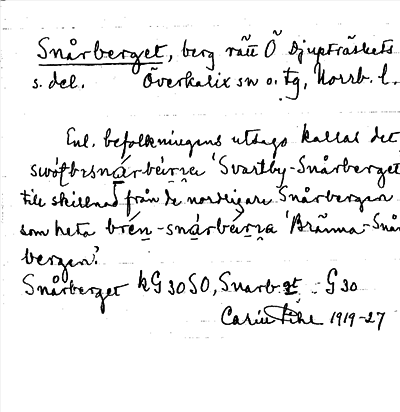 Snårberget, berg rätt Ö Djupträskets
s. del. Överkalix sn o. tg, Norrb. l.
Enl. befolkningens utsago kallas det
'Svartby-Snårberget
till skillnad från de nordligare Snårbergen
som heta brén-snárbérja 'Bränna-Snår
bergen'.
Snårberget kG 30 SO, Snarb.et : G 30
Carin Pihl 1919-27